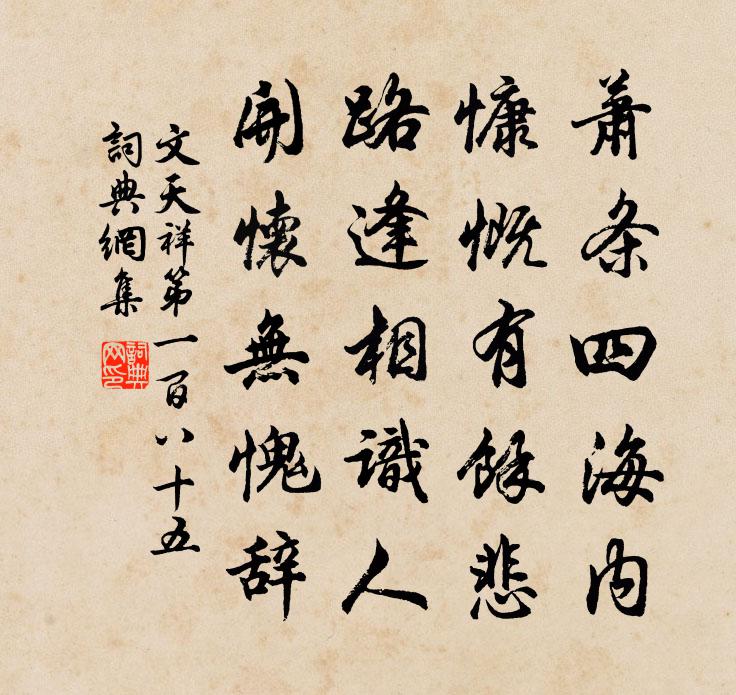 萧条四海内
慷慨有餘悲
路逢相識人
開懷無愧辞
文天祥第一百八十五
詞典網集
詞典網印